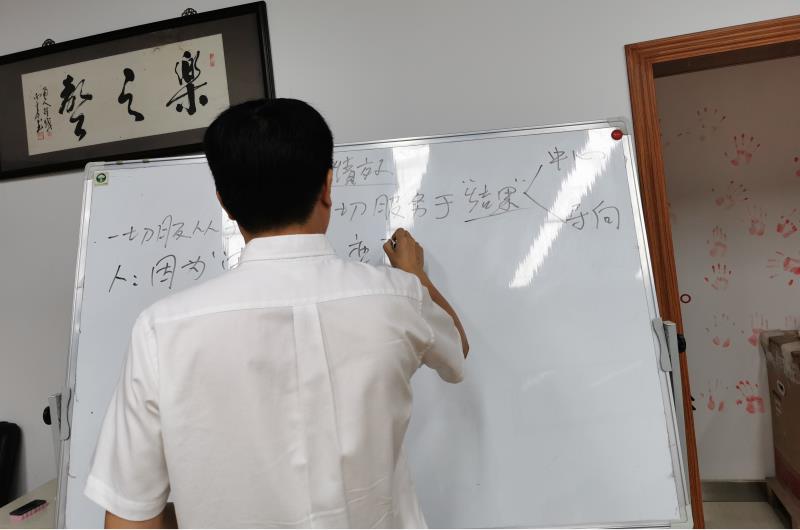 樂之聲
绩效
一切服从 切服务于"结果" 中心
导向
人:因为"